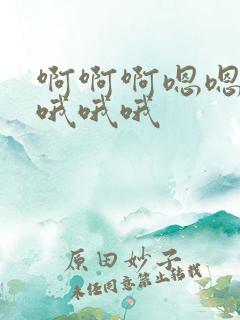 啊啊啊嗯嗯
哦哦哦
原田妙子
未经同意禁止转载